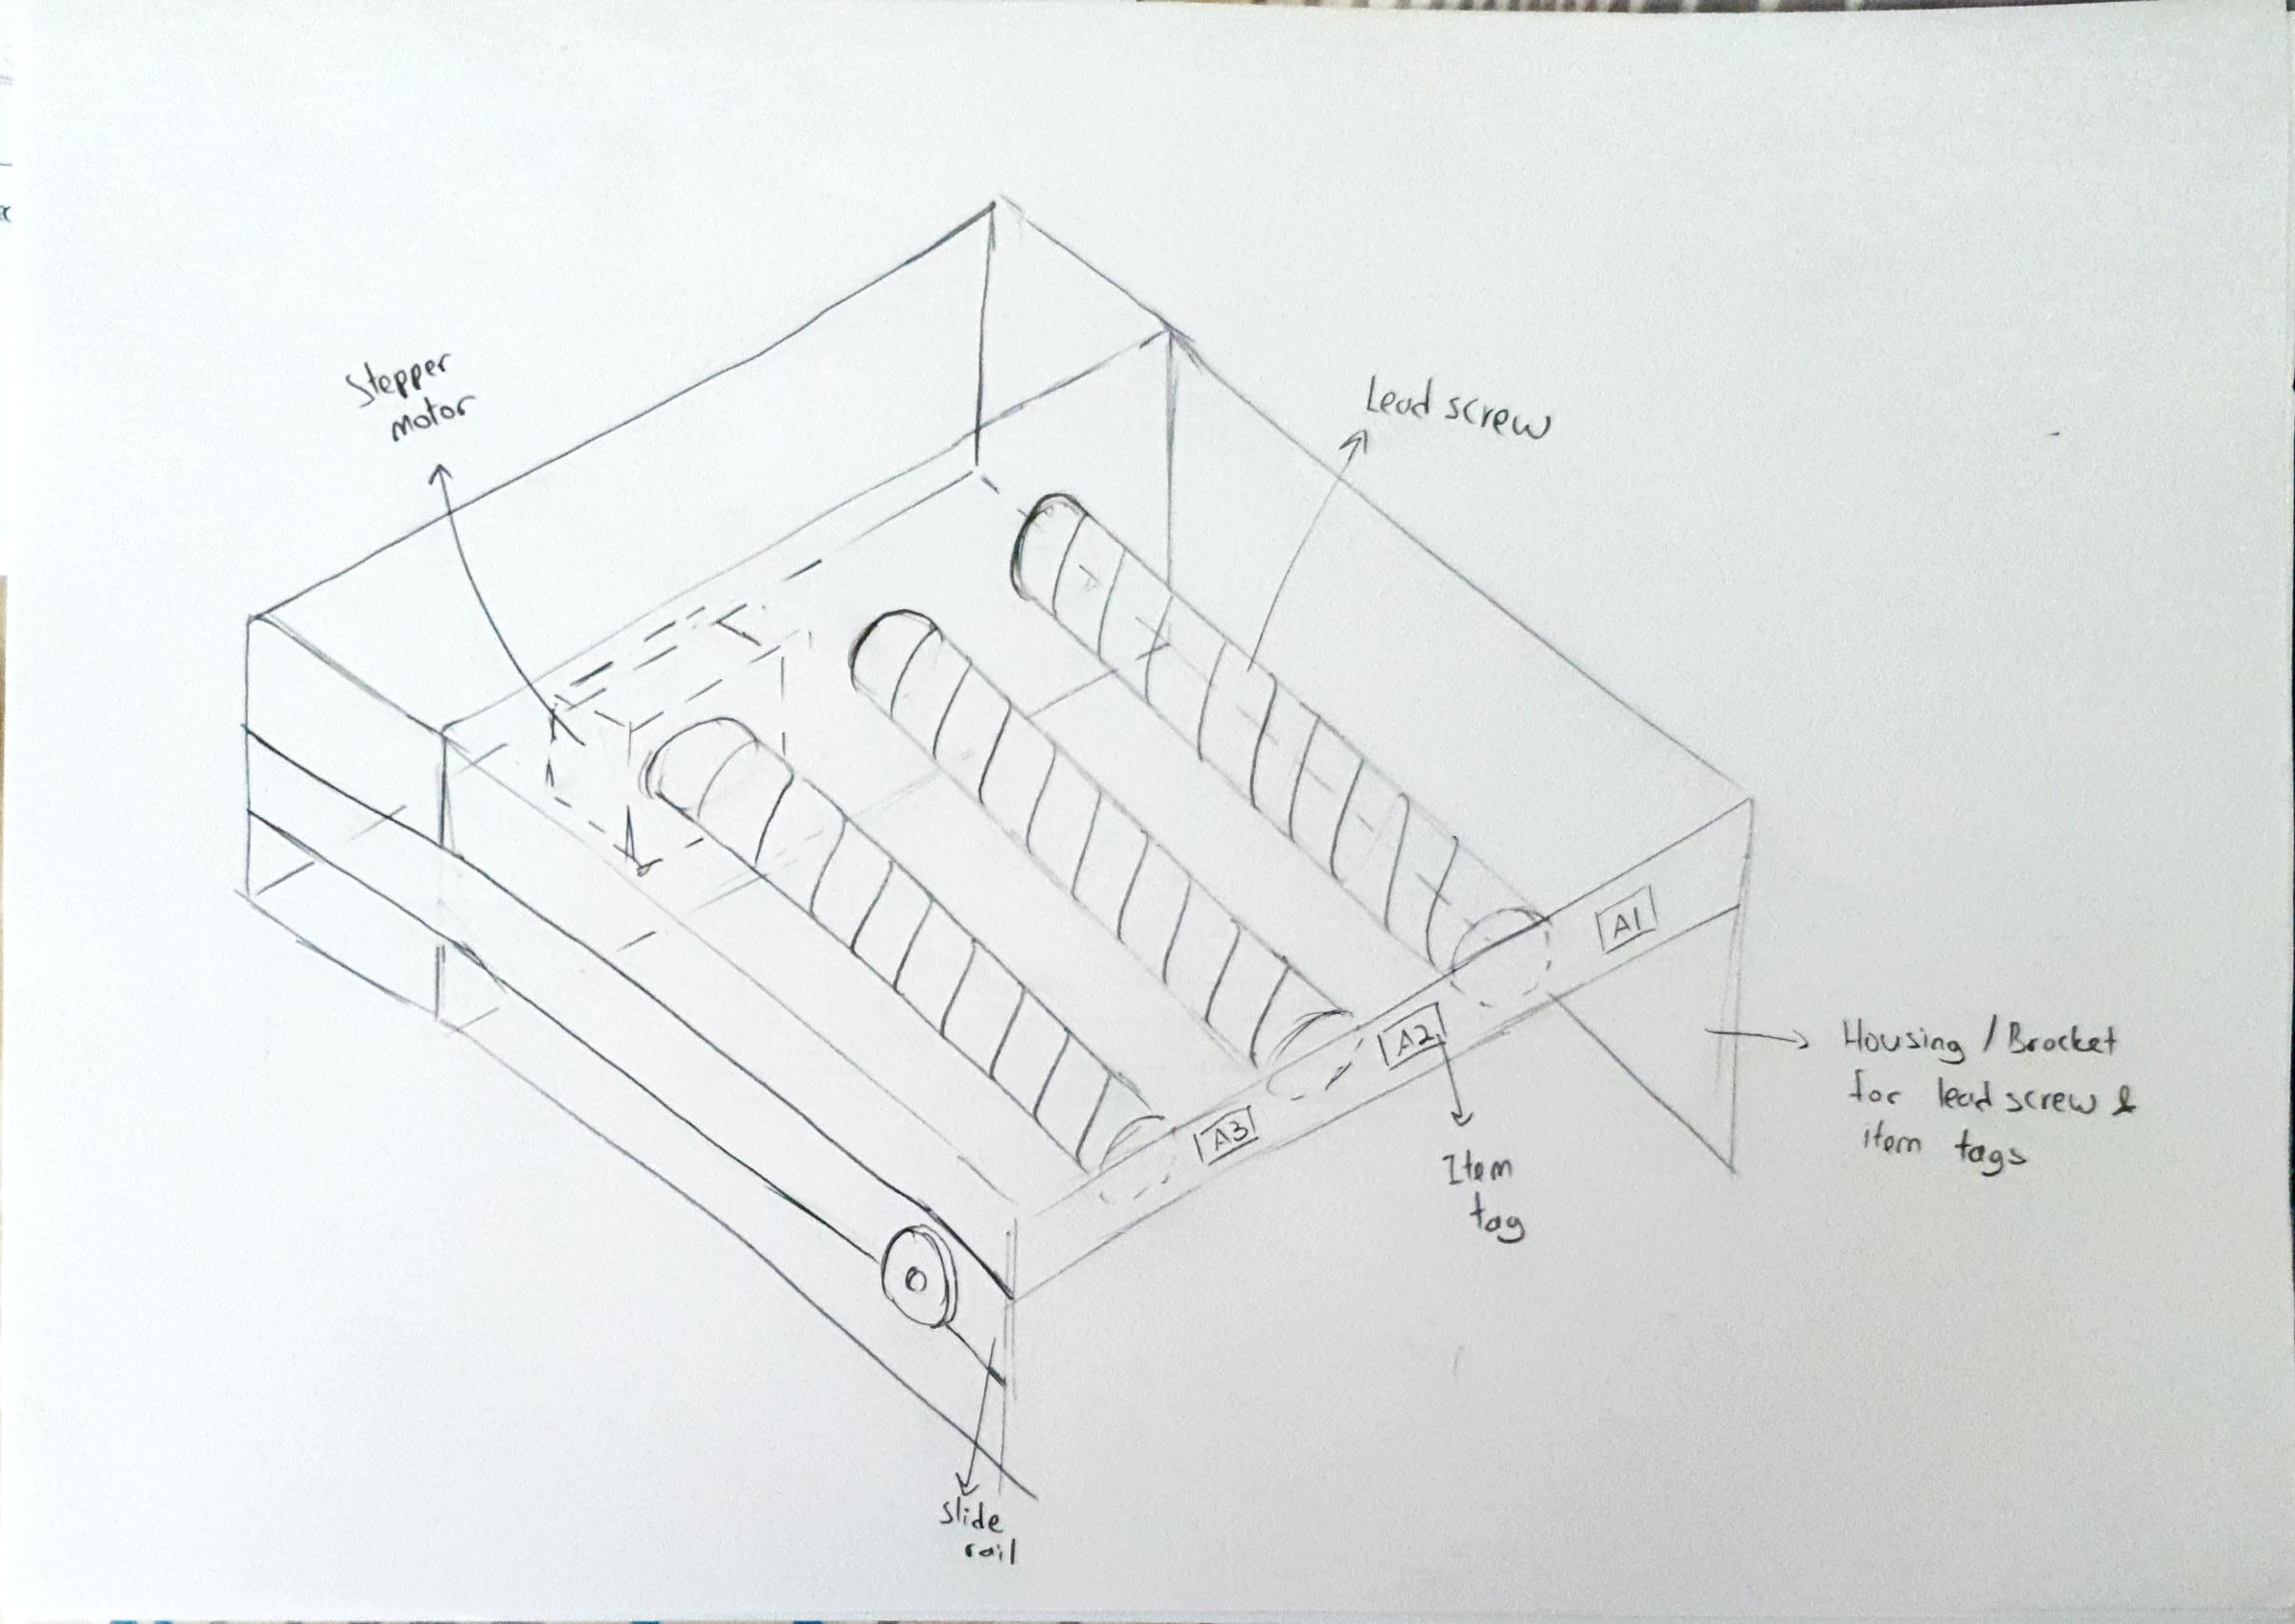 Stepper
motor
Lead screw
A1
A2
A3
Housing / Bracket
for lead screw &
item tags
Item
tag
slide
rail